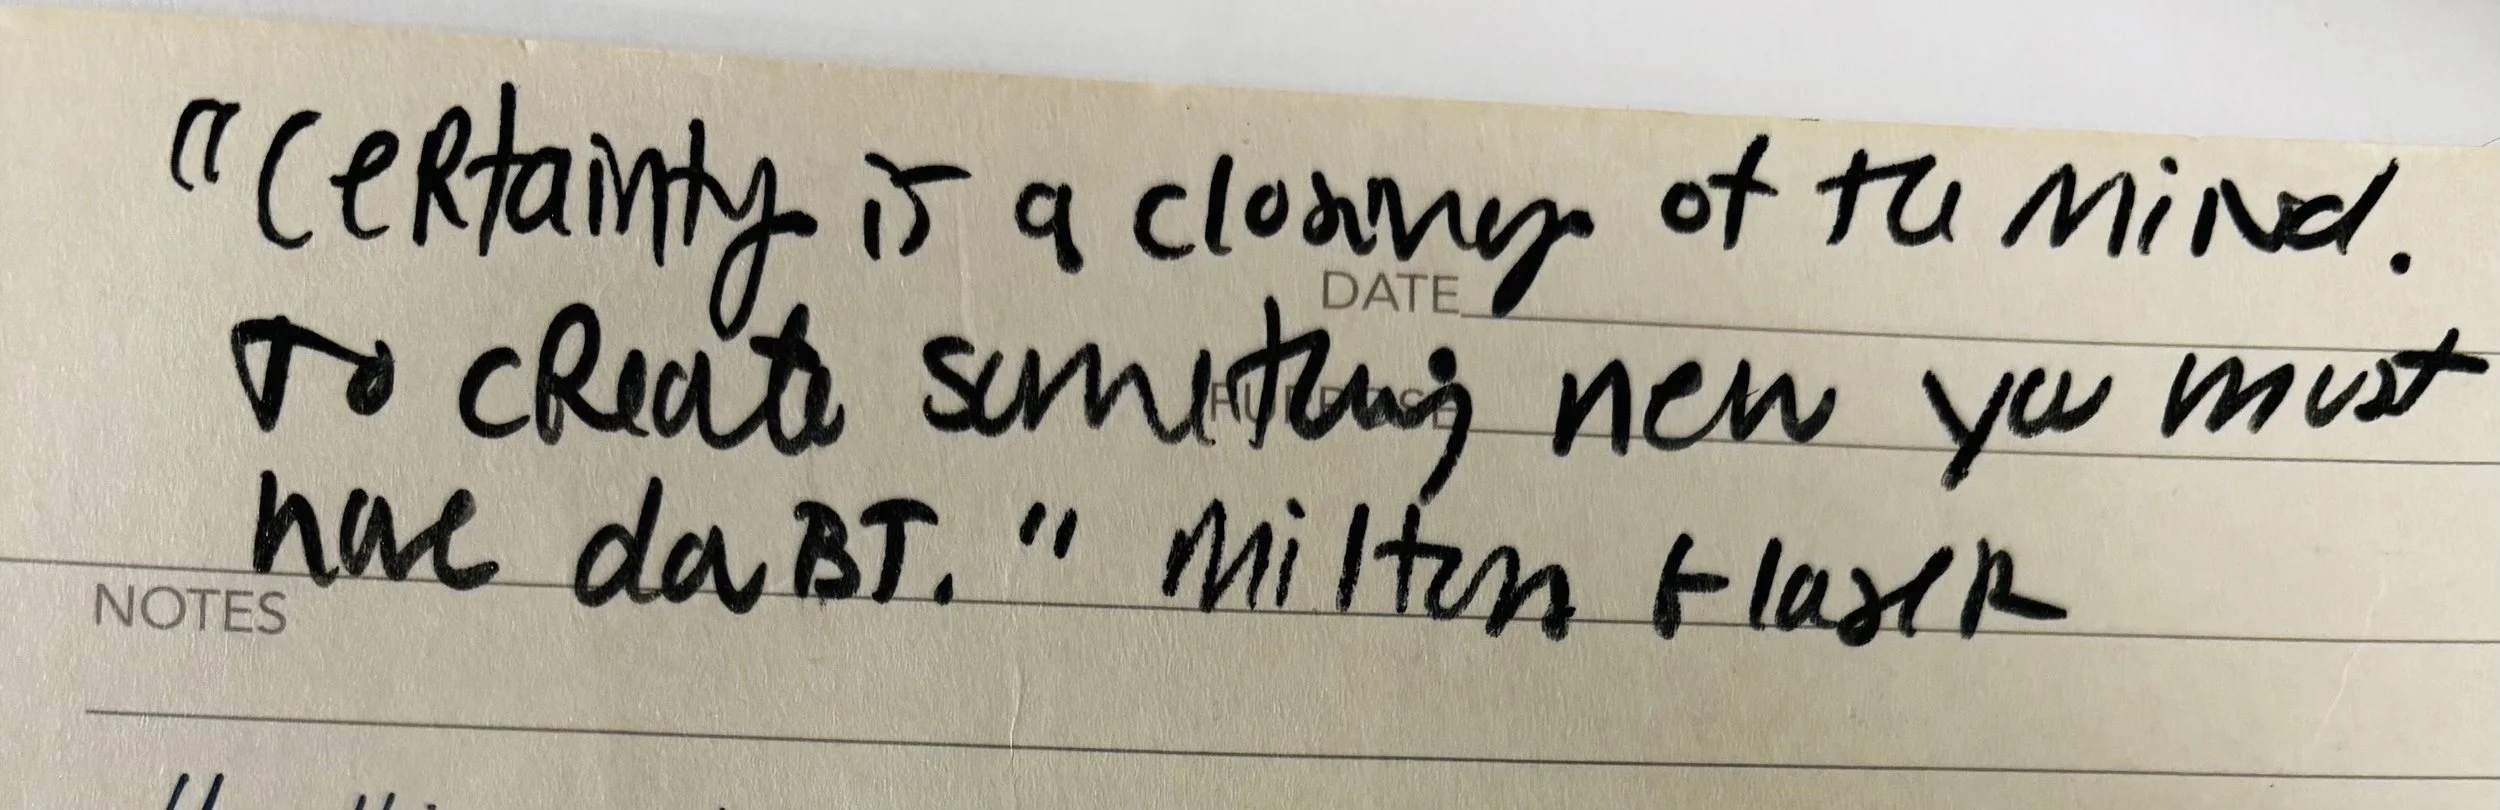 "Certainty is a closing of the mind.
DATE
To create something new you must
PURPOSE
have doubt." Milton Glaser
NOTES